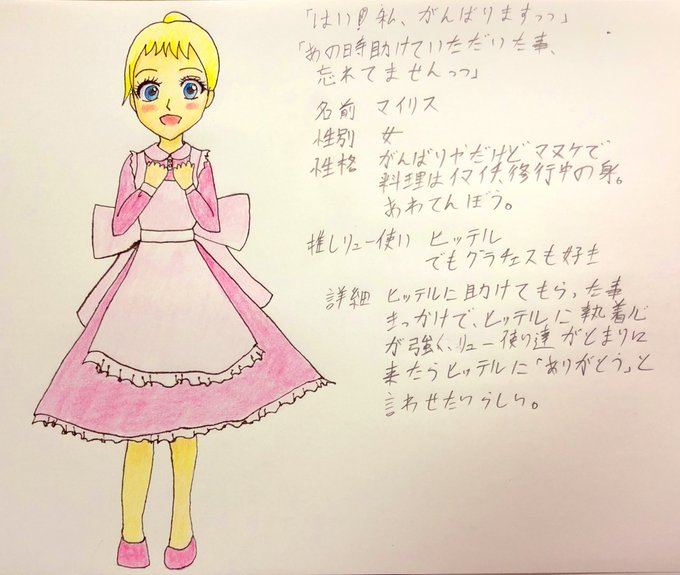 「はい!私、がんばりますっっ」
「あの日時助けていただいた事、
忘れてませんっっ」
名前 マイリス
性別 女
性格 がんばりやだけどマヌケで
料理はイマイチ、修行中の身。
あわてんぼう。
推しリュー使い ヒッテル
でもグラチェスも好き
詳細 ヒッテルに助けてもらった事
きっかけで、ヒッテルに執着心
が強く、リュー使い達がとまりに
来たらヒッテルに「ありがとう」と
言わせたいらしい。